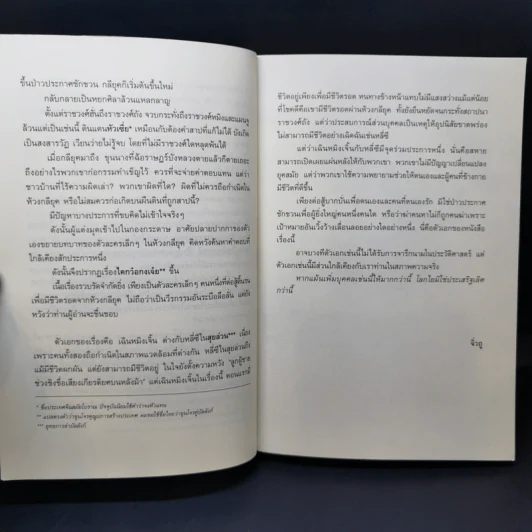 ขึ้นป่าวประกาศชักชวน กลียุคก็เริ่มต้นขึ้นใหม่
กลับกลายเป็นหยกศิลาล้วนแหลกลาญ
ตั้งแต่ราชวงศ์ฮั่นถึงราชวงศ์ถัง จวบกระทั่งถึงราชวงศ์หมิงและแมนจู
ล้วนแต่เป็นเช่นนี้ ดินแดนหัวเซี่ย* เหมือนกับต้องคำสาปที่แก้ไม่ได้ บังเกิด
เป็นสงสารวัฏ เวียนว่ายไม่รู้จบ โดยที่ไม่มีราชวงศ์ใดหลุดพ้นได้
เมื่อกลียุคมาถึง ขุนนางที่ฉ้อราษฎร์บังหลวงตายแล้วก็ตายเถอะ
ถึงอย่างไรพวกเขาก่อกรรมทำเข็ญไว้ ควรที่จะจ่ายค่าตอบแทน แต่ว่า
ชาวบ้านที่ไร้ความผิดเล่า? พวกเขาผิดที่ใด? ผิดที่ไม่ควรถือกำเนิดใน
ห้วงกลียุค หรือไม่สมควรเกิดบนผืนดินที่ถูกสาปนี้?
มีปัญหาบางประการที่ขบคิดไม่เข้าใจจริงๆ
ดังนั้นผู้แต่งมุดเข้าไปในกองกระดาษ อาศัยปลายปากกาของตัว
เองขยายบทบาทของตัวละครเล็กๆ ในห้วงกลียุค คิดหวังค้นหาคำตอบที่
ใกล้เคียงสักประการหนึ่ง
ดังนั้นจึงปรากฏเรื่องไคกว๋อกงเจ๋ย** ขึ้น
เนื้อเรื่องรวบรัดจำกัดยิ่ง เพียงเป็นตัวละครเล็กๆ คนหนึ่งที่ต่อสู้ดิ้นรน
เพื่อมีชีวิตรอดจากห้วงกลียุค ไม่ถือว่าเป็นวีรกรรมอันระบือลือลั่น แต่ยัง
หวังว่าท่านผู้อ่านจะชื่นชอบ
ตัวเอกของเรื่องคือ เฉินหมิงเจิ้น ต่างกับหลี่ซีในสุยล่วน*** เนื่อง
เพราะคนทั้งสองถือกำเนิดในสภาพแวดล้อมที่ต่างกัน หลี่ซีในสุยล่วนถึง
แม้มีชีวิตผกผัน แต่ยังสามารถมีชีวิตอยู่ ในใจยังตั้งความหวัง "ลูกผู้ชาย
ช่วงชิงชื่อเสียงเกียรติยศบนหลังม้า" แต่เฉินหมิงเจิ้นในเรื่องนี้ ตอนแรกมี
* ชื่อประเทศจีนสมัยโบราณ ปัจจุบันนิยมใช้คำว่าจงหัวแทน
*** ยุทธการล่าบัลลังก์
ชีวิตอยู่เพียงเพื่อมีชีวิตรอด หนทางข้างหน้าแทบไม่มีแสงสว่างแม้แต่น้อย
ที่โชคดีคือเขามีชีวิตรอดผ่านห้วงกลียุค ทั้งยังยืนหยัดจนกระทั่งสถาปนา
ราชวงศ์ถัง แต่ว่าประสบการณ์ส่วนบุคคลเป็นเหตุให้อุปนิสัยขาดพร่อง
ไม่สามารถมีชีวิตอย่างเฉิดฉันเช่นหลี่ซี
แต่ว่าเฉินหมิงเจิ้นกับหลี่ซีมีจุดร่วมประการหนึ่ง นั่นคือสหาย
สามารถเปิดเผยแผ่นหลังให้กับพวกเขา พวกเขาไม่มีปัญญาเปลี่ยนแปลง
ยุคสมัย แต่ว่าพวกเขาใช้ความพยายามช่วยให้ตนเองและผู้คนที่ข้างกาย
มีชีวิตที่ดีขึ้น
เพียงต่อสู้บากบั่นเพื่อตนเองและคนที่ตนเองรัก มิใช่ป่าวประกาศ
ชักชวนเพื่อผู้ยิ่งใหญ่คนหนึ่งคนใด หรือว่าฆ่าคนตาไม่กี่ถูกคนฆ่าเพราะ
เป้าหมายอันเวิ้งว้างเลื่อนลอยอย่างใดอย่างหนึ่ง นี่คือตัวเอกของหนังสือ
เรื่องนี้
อาจบางทีตัวเอกเช่นนี้ไม่ได้รับการจารึกนามในประวัติศาสตร์ แต่
ตัวเอกเช่นนี้มีส่วนใกล้เคียงกับเราท่านในสภาพความจริง
หากแม้นเพิ่มบุคคลเช่นนี้ให้มากกว่านี้ โลกใดมิใช่ประเสริฐเลิศ
กว่านี้
จิ่วถู